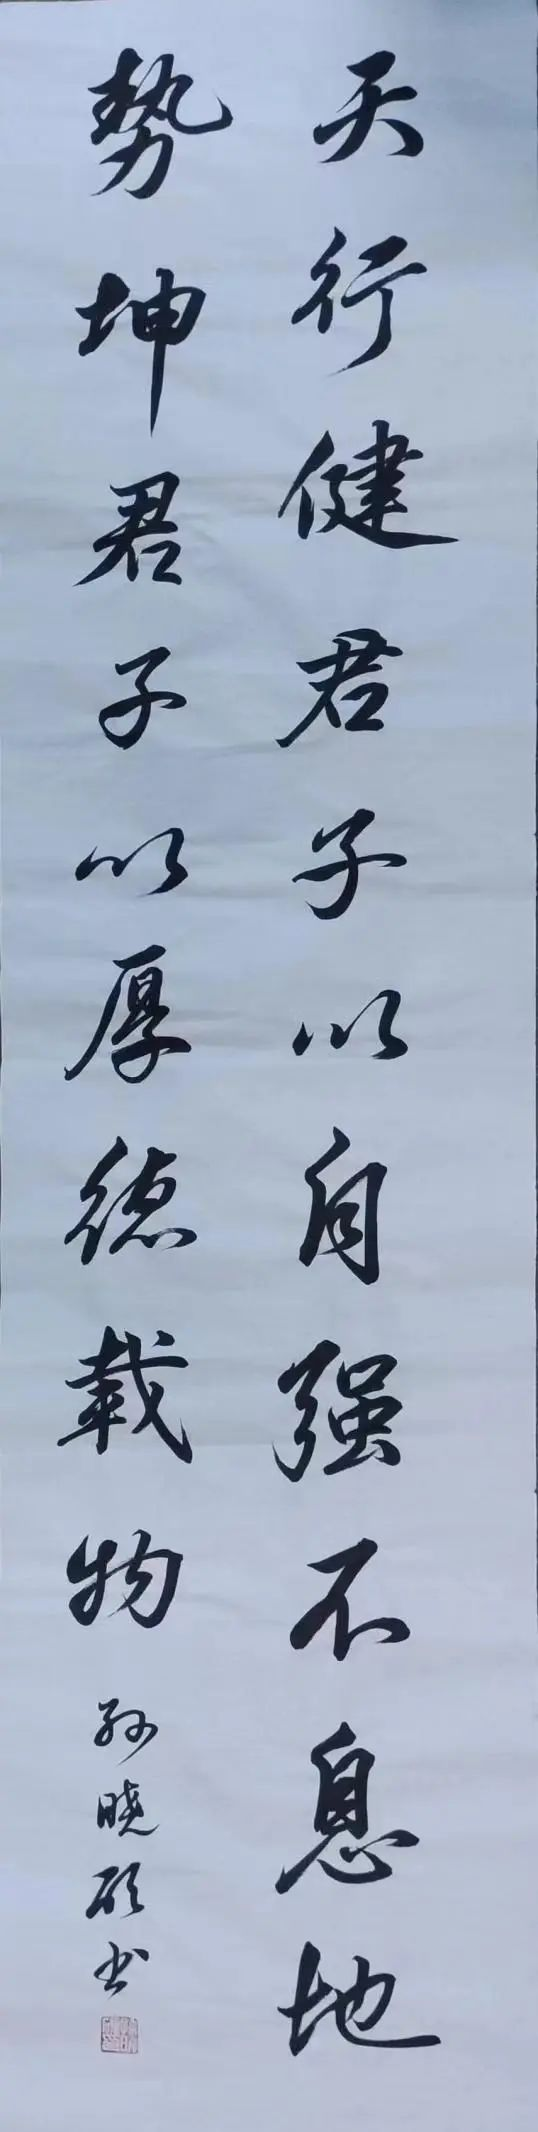 天行健君子以自强不息地
勢坤君子以厚德載物
孙晓硕书